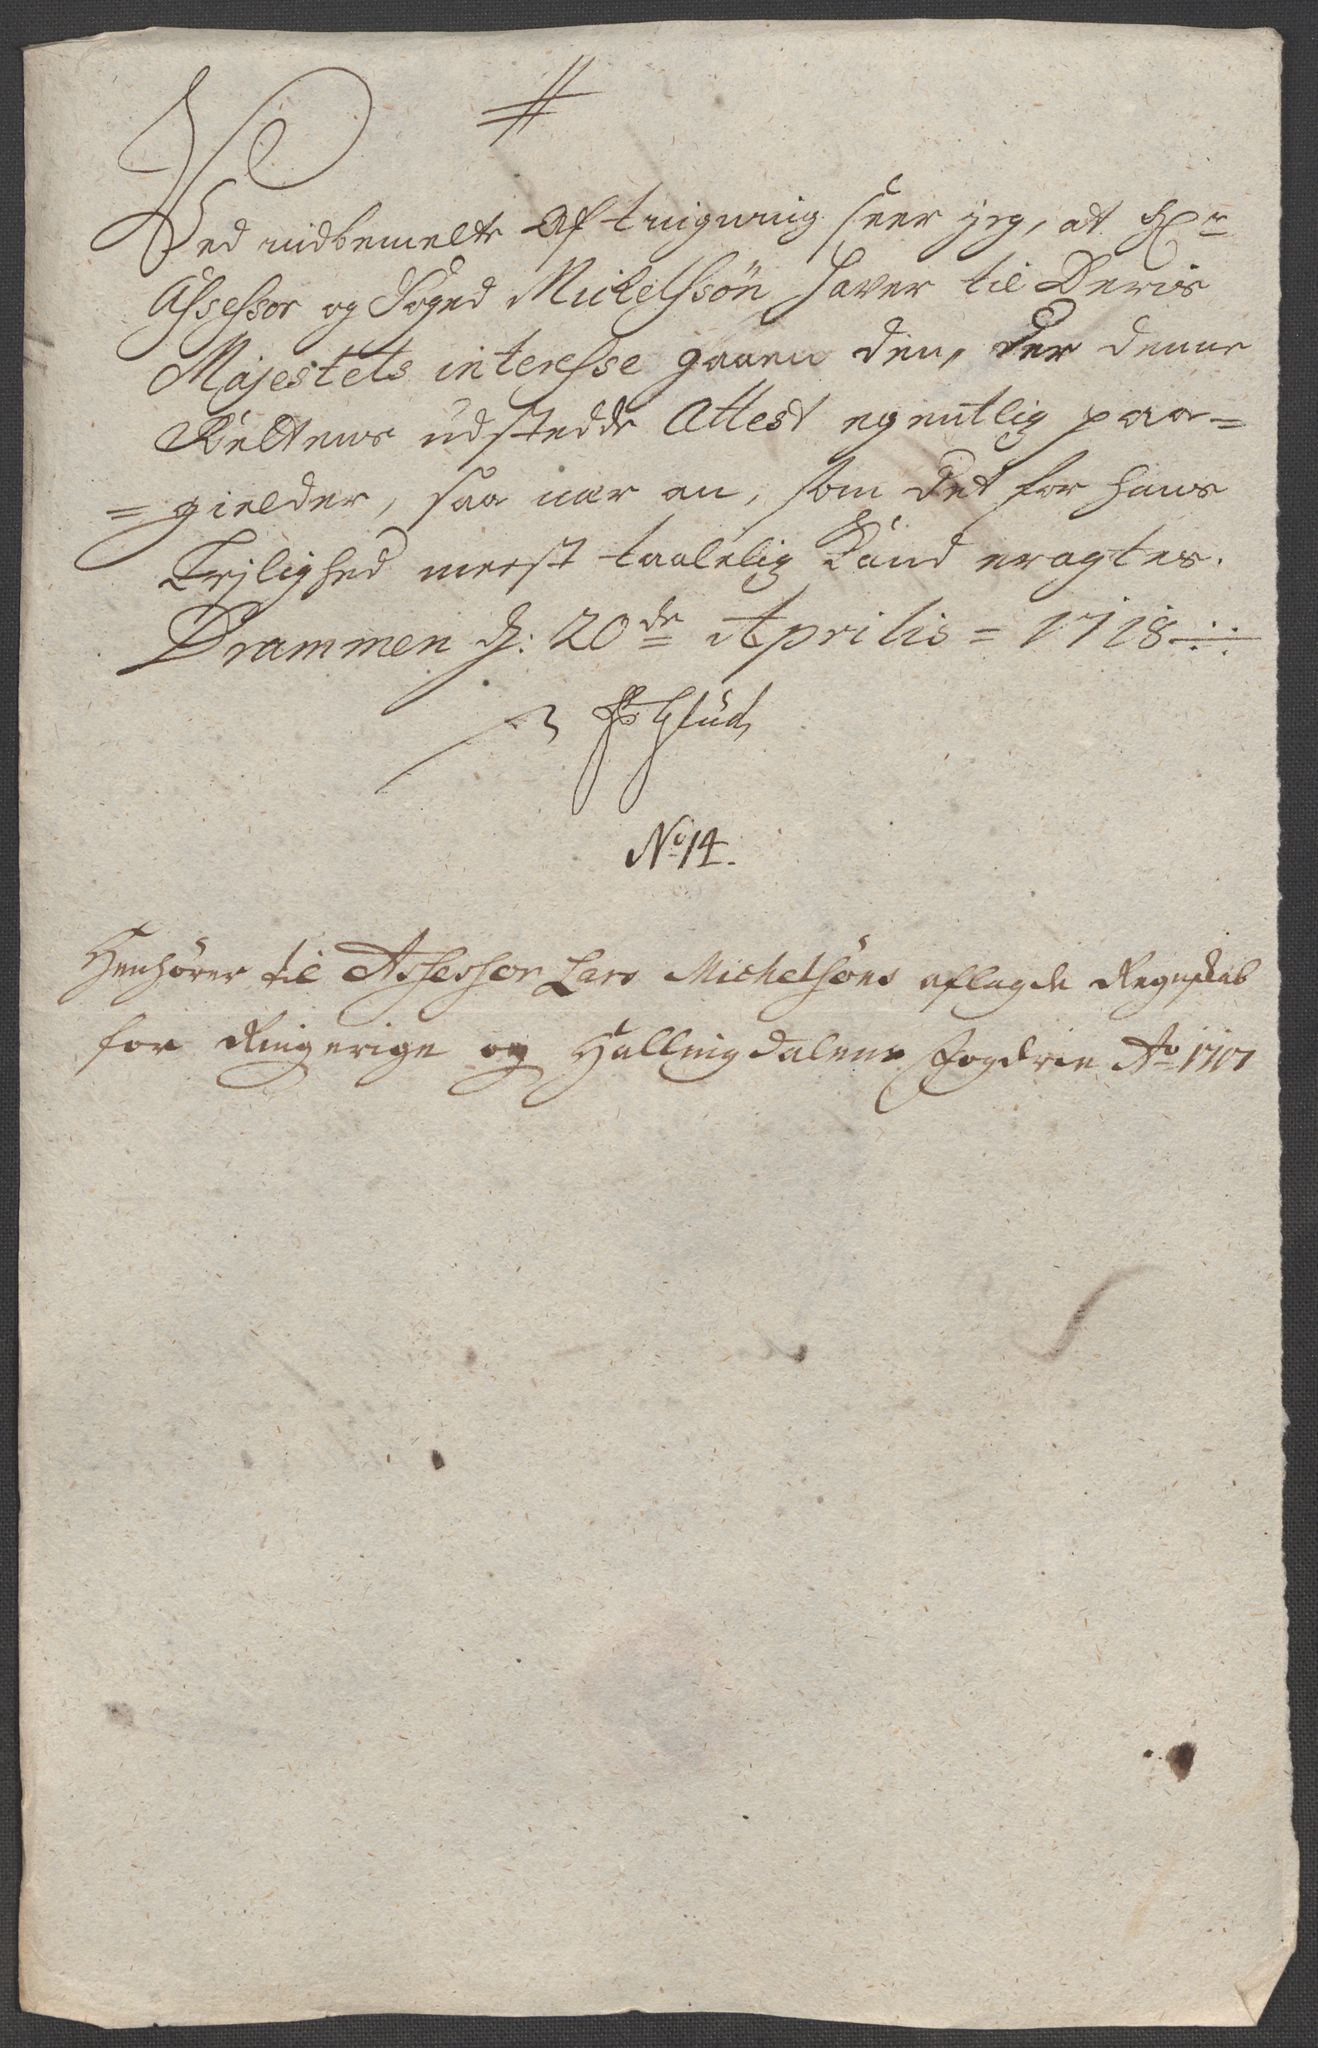 Ved midbemelte aftingning seer jeg, at Hr
Assessor og Foged Mickelssøn haver til Deris
Majestets interesse gaaen den, der denne
Rettens udstedde Attest egentlig paa=
=gielder, saa nær an, som det for hans
Lejlighed meest taalelig kand eragtes.
Drammen d: 20de Aprilis = 1718
Glud
No 14.
Henhører til Assessor Lars Michelsøns aflagde Regnskab
for Ringerige og Hallingdalens Fogderie Ao 1717